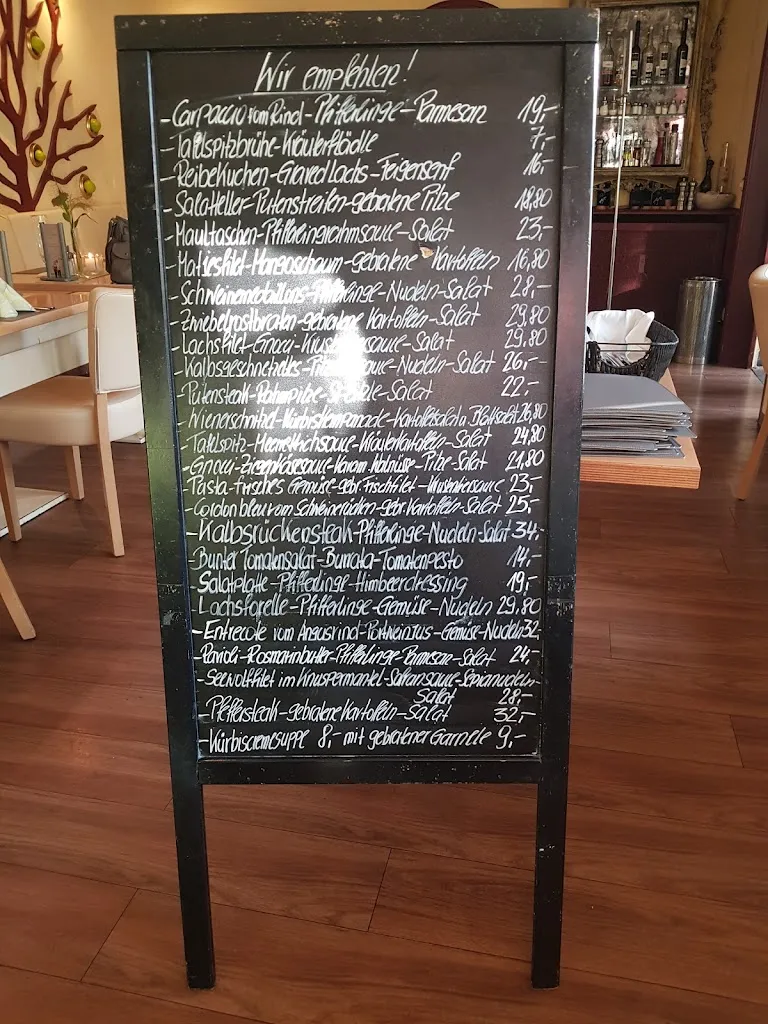 Wir empfehlen!
- Carpaccio vom Rind - Pfifferlinge - Parmesan 19,-
- Tafelspitzbrühe - Kräuterflädle 7,-
- Reibekuchen - Graved Lachs - Feigensenf 16,-
- Salatteller - Putenstreifen - gebratene Pilze 18,80
- Maultaschen - Pfifferlingrahmsauce - Salat 23,-
- Matjesfilet - Mangoschaum - gebratene Kartoffeln 16,80
- Schweinemedaillons - Pfifferlinge - Nudeln - Salat 28,-
- Zwiebelrostbraten - gebratene Kartoffeln - Salat 29,80
- Lachsfilet - Gnocci - sauce - Salat 29,80
- Kalbsgeschnetzeltes - sauce - Nudeln - Salat 26,-
- Putensteak - Rahmpilze - Spätzle - Salat 22,-
- Wienerschnitzel - Kürbiskernpanade - Kartoffelsalat u. Blattsalat 26,80
- Tafelspitz - Meerrettichsauce - Kräuterkartoffeln - Salat 24,80
- Gnocci - Ziegenkäsesauce - karam. Walnüsse - Pilze - Salat 21,80
- Pasta - frisches Gemüse - gebr. Fischfilet - Krustentiersauce 23,-
- Cordon bleu vom Schweinerücken - gebr. Kartoffeln - Salat 25,-
- Kalbsrückensteak - Pfifferlinge - Nudeln - Salat 34,-
- Bunter Tomatensalat - Burrata - Tomatenpesto 14,-
- Salatplatte - Pfifferlinge - Himbeerdressing 19,-
- Lachsforelle - Pfifferlinge - Gemüse - Nudeln 29,80
- Entrecote vom Angusrind - Portweinjus - Gemüse - Nudeln 32,
- Ravioli - Rosmarinbutter - Pfifferlinge - Parmesan - Salat 24,-
- Seewolffilet im Knuspermantel - Safransauce - Sepianudeln -
Salat 28,-
- Pfeffersteak - gebratene Kartoffeln - Salat 32,-
- Kürbiscremesuppe 8,- mit gebratener Garnele 9,-